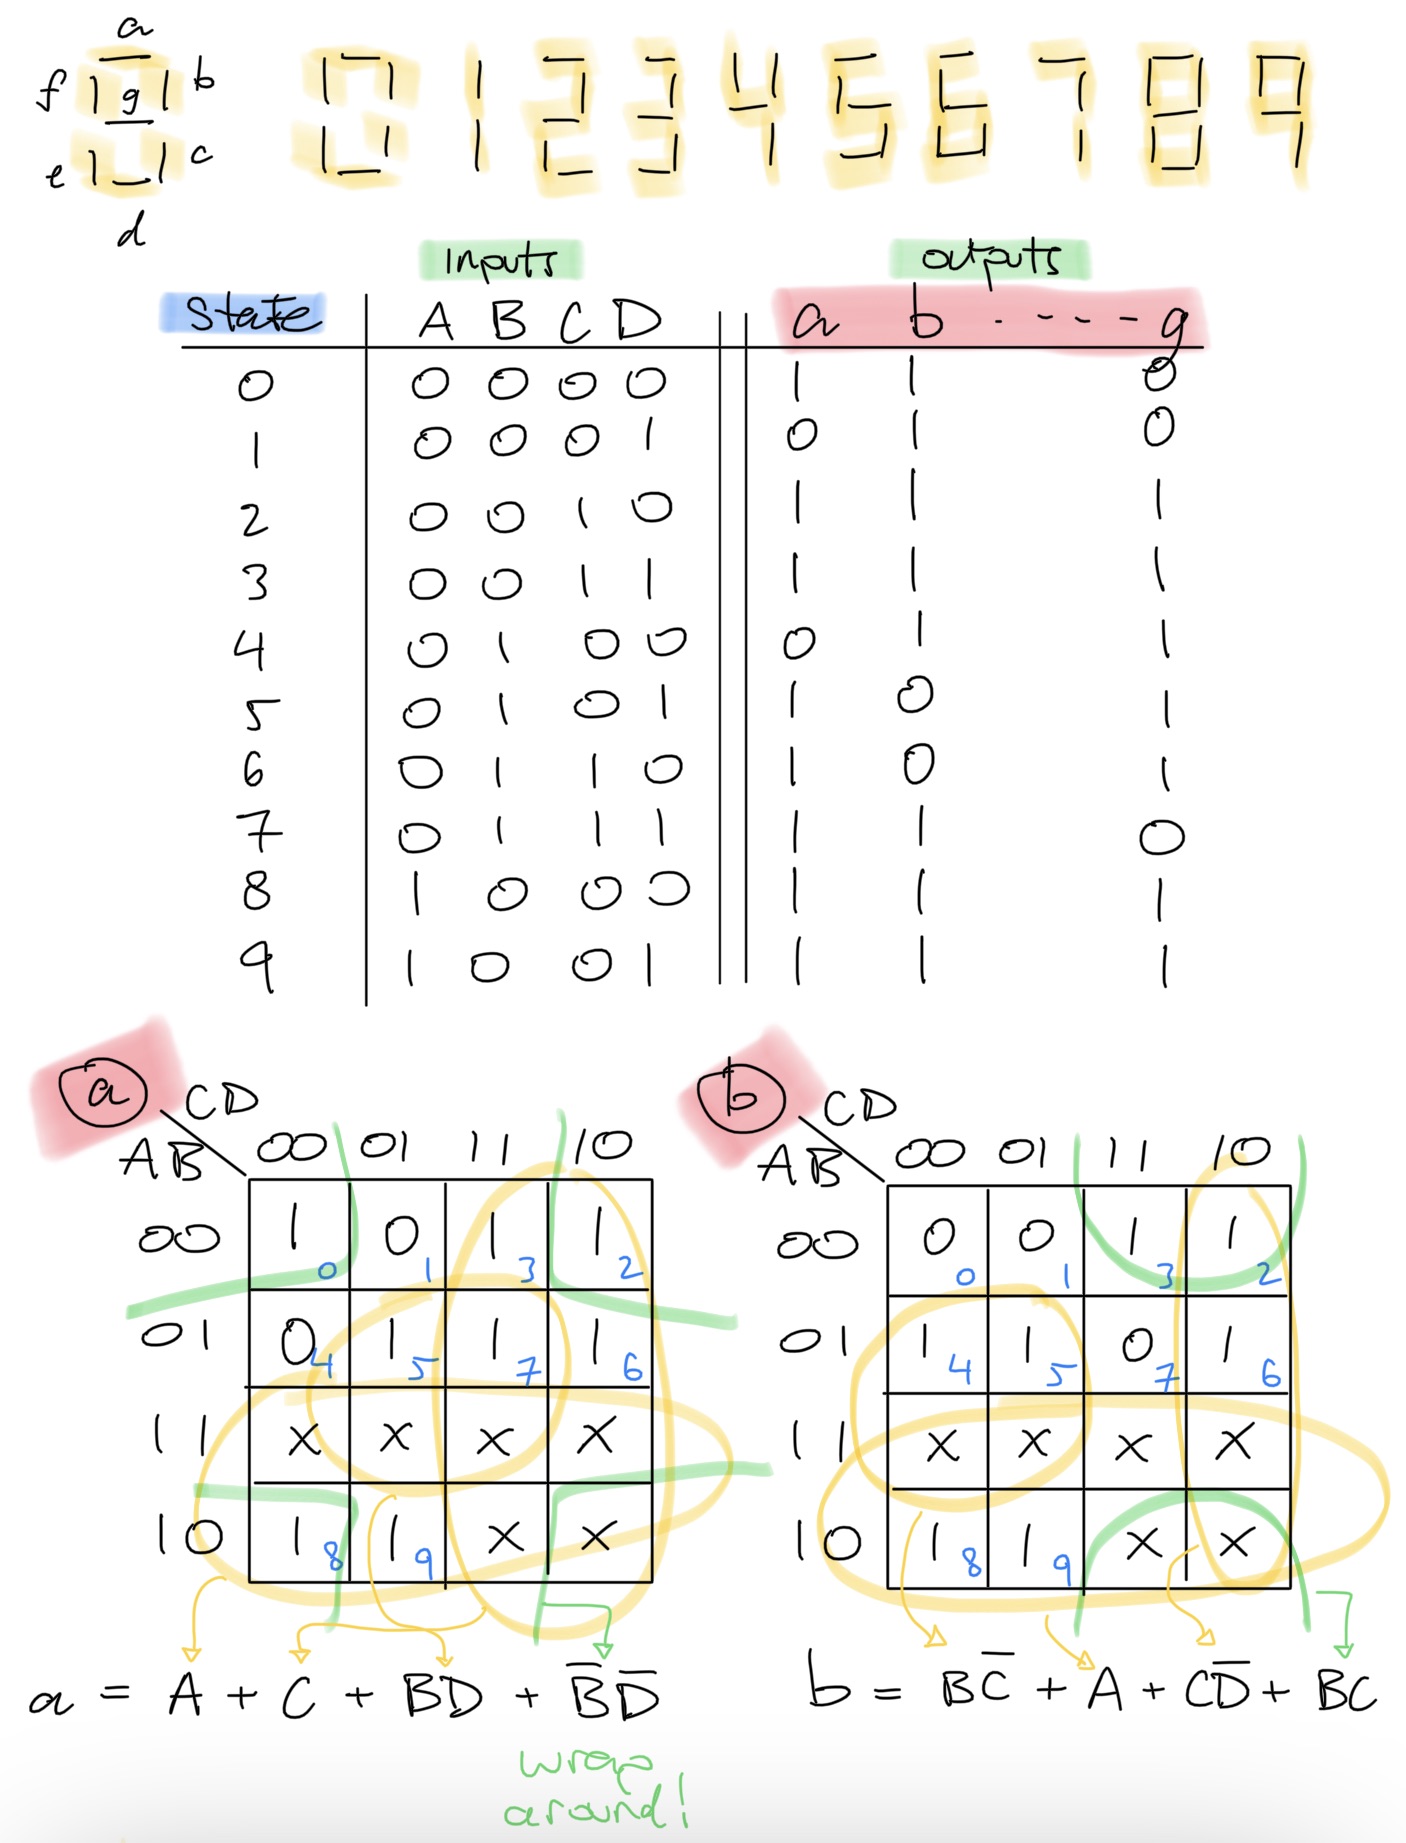 a
f g b
e c
d
0 1 2 3 4 5 6 7 8 9
inputs outputs
state A B C D a b . - - - - g
0 0 0 0 0 1 1 0
1 0 0 0 1 0 1 0
2 0 0 1 0 1 1 1
3 0 0 1 1 1 1 1
4 0 1 0 0 0 1 1
5 0 1 0 1 1 0 1
6 0 1 1 0 1 0 1
7 0 1 1 1 1 1 0
8 1 0 0 0 1 1 1
9 1 0 0 1 1 1 1
a CD
AB 00 01 11 10
00 1 0 0 1 1 3 1 2
01 0 4 1 5 1 7 1 6
11 x x x x
10 1 8 1 9 x x
a = A + C + BD + B̅D̅
wrap
around!
b CD
AB 00 01 11 10
00 0 0 0 1 1 3 1 2
01 1 4 1 5 0 7 1 6
11 x x x x
10 1 8 1 9 x x
b = BC̅ + A + CD̅ + BC